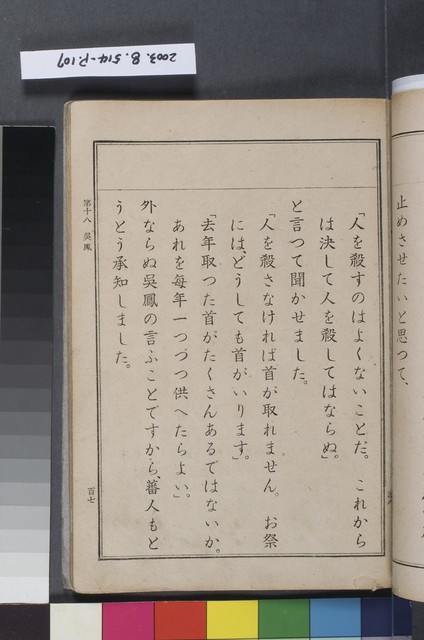 2003.8.514-P.107
止めさせたいと思つて、
「人を殺すのはよくないことだ。これから
は決して人を殺してはならぬ」。
と言つて聞かせました。
「人を殺さなければ首が取れません。お祭
には、どうしても首がいります」。
「去年取つた首がたくさんあるではないか。
あれを毎年一つづつ供へたらよい」。
外ならぬ吳鳳の言ふことですから、蕃人もと
うとう承知しました。
第十八 吳鳳
百七